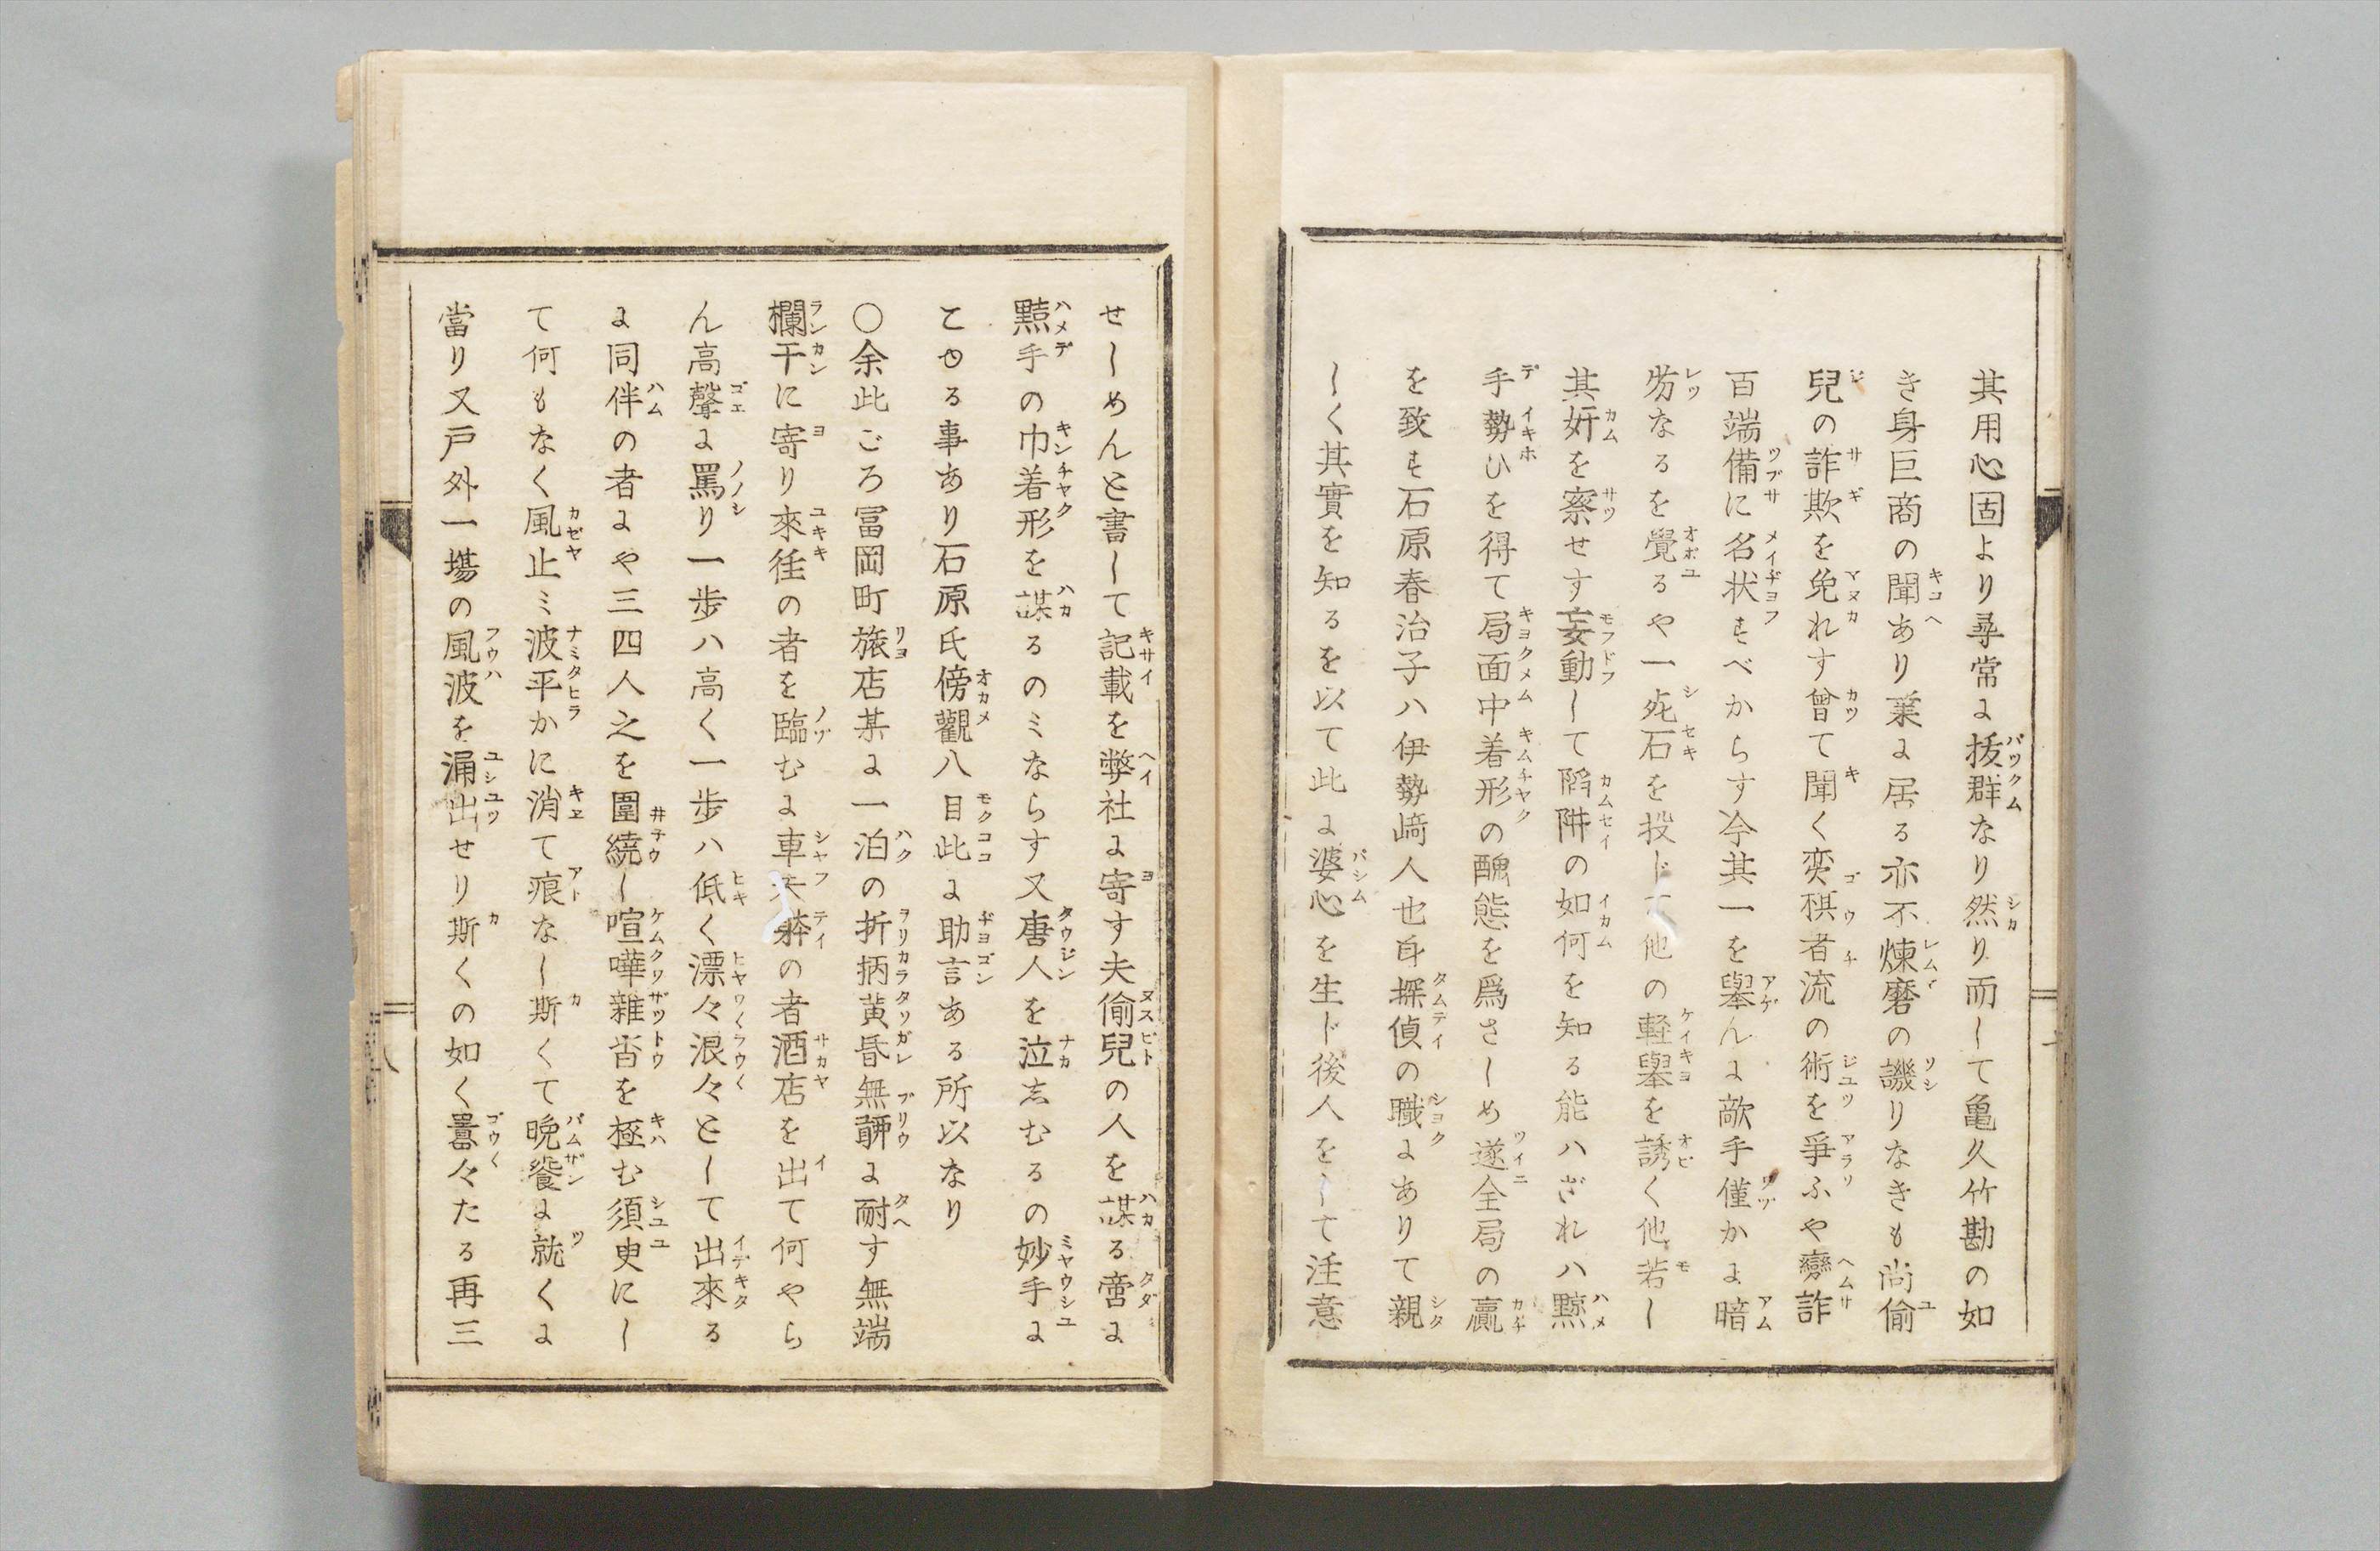 其用心固より尋常に抜群なり然り而して亀久竹勘の如
き身巨商の聞あり業に居る亦不煉磨の譏りなきも尚偷
兒の詐欺を免れす曾て聞く奕棋者流の術を爭ふや變詐
百端備に名状すべからす今其一を擧んに敵手僅かに暗
劣なるを覺るや一死石を投じて他の軽擧を誘く他若し
其奸を察せす妄動して陷阱の如何を知る能ハざれハ㸃
手勢ひを得て局面中着形の醜態を爲さしめ遂全局の贏
を致す石原春治子ハ伊勢﨑人也身探偵の職にありて親
しく其實を知るを以て此に婆心を生じ後人をして注意
せしめんと書して記載を弊社に寄す夫偷兒の人を謀る啻に
㸃手の巾着形を謀るのミならす又唐人を泣志むるの妙手に
とゆる事あり石原氏傍觀八目此に助言ある所以なり
〇余此ごろ冨岡町旅店某に一泊の折柄黄昏無聊に耐す無端
欄干に寄り來徃の者を臨むに車夫躰の者酒店を出て何やら
ん高聲に罵り一歩ハ高く一歩ハ低く漂々浪々として出來る
に同伴の者にや三四人之を圍繞し喧嘩雜沓を極む須臾にし
て何もなく風止ミ波平かに消て痕なし斯くて晩飡に就くに
當り又戸外一塲の風波を涌出せり斯くの如く囂々たる再三